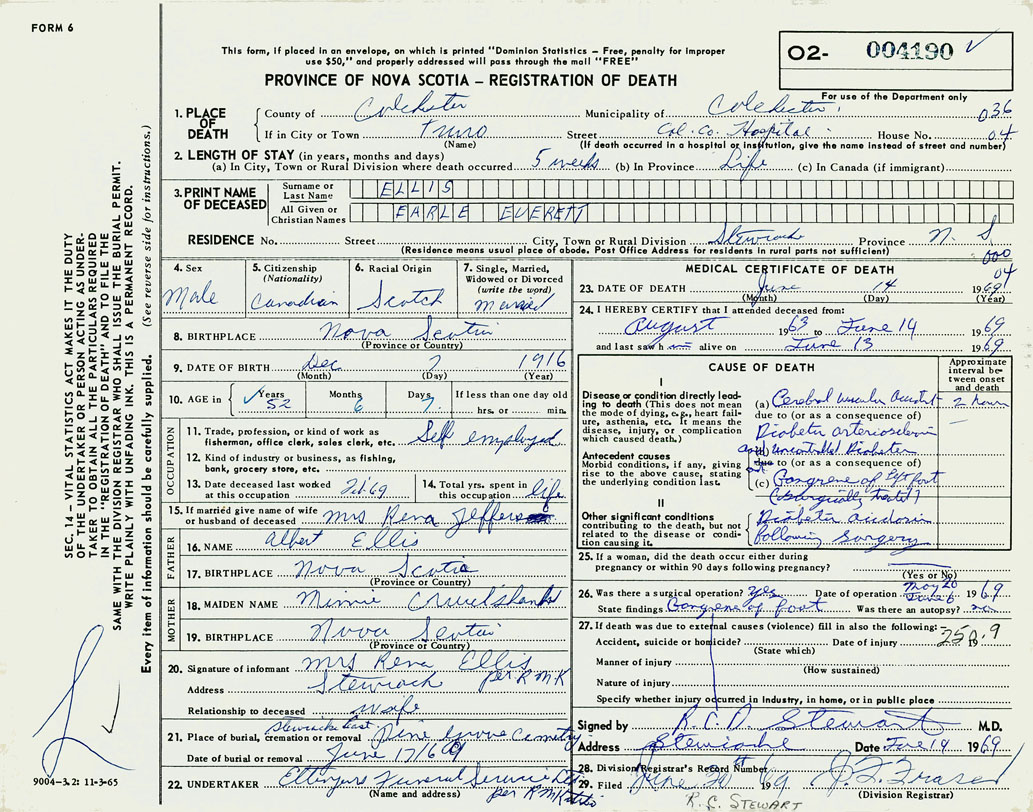 FORM 6
This form, if placed in an envelope, on which is printed "Dominion Statistics – Free, penalty for improper
use $50," and properly addressed will pass through the mail "FREE"
O2- 004190
PROVINCE OF NOVA SCOTIA – REGISTRATION OF DEATH
For use of the Department only
1. PLACE OF DEATH County of Colchester Municipality of Colchester 036
If in City or Town Truro Street Col. Co. Hospital House No. 04
(Name) (If death occurred in a hospital or institution, give the name instead of street and number)
2. LENGTH OF STAY (in years, months and days)
(a) In City, Town or Rural Division where death occurred 5 weeks (b) In Province Life (c) In Canada (if immigrant)
3. PRINT NAME OF DECEASED Surname or Last Name ELLIS
All Given or Christian Names EARLE EVERETT
RESIDENCE No. Street City, Town or Rural Division Province N. S.
(Residence means usual place of abode. Post Office Address for residents in rural parts not sufficient)
000
04
4. Sex Male
5. Citizenship (Nationality) Canadian
6. Racial Origin Scotch
7. Single, Married, Widowed or Divorced (write the word) Married
8. BIRTHPLACE Nova Scotia
(Province or Country)
9. DATE OF BIRTH Dec 7 1916
(Month) (Day) (Year)
10. AGE in Years 52 Months 6 Days 7 If less than one day old hrs. or min.
OCCUPATION
11. Trade, profession, or kind of work as fisherman, office clerk, sales clerk, etc. Self employed
12. Kind of industry or business, as fishing, bank, grocery store, etc.
13. Date deceased last worked at this occupation Feb 69
14. Total yrs. spent in this occupation life
15. If married give name of wife or husband of deceased Mrs Rena Jefferson
FATHER
16. NAME Albert Ellis
17. BIRTHPLACE Nova Scotia
(Province or Country)
MOTHER
18. MAIDEN NAME Minnie Cruikshanks
19. BIRTHPLACE Nova Scotia
(Province or Country)
20. Signature of informant Mrs Rena Ellis
per RMK
Address
Relationship to deceased wife
21. Place of burial, cremation or removal Pine Grove Cemetery
Date of burial or removal June 17/69
22. UNDERTAKER Funeral Service Ltd
(Name and address) per
MEDICAL CERTIFICATE OF DEATH
23. DATE OF DEATH June 14 1969
(Month) (Day) (Year)
24. I HEREBY CERTIFY that I attended deceased from:
August 1963 to June 14 1969
and last saw h alive on June 13 1969
CAUSE OF DEATH
Approximate interval between onset and death
I
Disease or condition directly leading to death (This does not mean the mode of dying, e.g., heart failure, asthenia, etc. It means the disease, injury, or complication which caused death.)
(a) Cerebral vascular accident 2 hours
due to (or as a consequence of)
Diabetes arteriosclerosis
and uncontrolled Diabetes
Antecedent causes
Morbid conditions, if any, giving rise to the above cause, stating the underlying condition last.
due to (or as a consequence of)
(c) Gangrene of foot
(surgically treated)
II
Other significant conditions
contributing to the death, but not related to the disease or condition causing it.
Diabetic acidosis
following surgery
25. If a woman, did the death occur either during pregnancy or within 90 days following pregnancy?
(Yes or No)
26. Was there a surgical operation? Yes Date of operation May 20 June 6 1969
State findings Gangrene of foot Was there an autopsy? no
27. If death was due to external causes (violence) fill in also the following:-
250.9
Accident, suicide or homicide? Date of injury 19
(State which)
Manner of injury
(How sustained)
Nature of injury
Specify whether injury occurred in industry, in home, or in public place
Signed by R.C.D. Stewart M.D.
Address Stewiacke Date June 14 1969
28. Division Registrar's Record Number
29. Filed 1969
(Division Registrar)
R. C. STEWART
SEC. 14 – VITAL STATISTICS ACT MAKES IT THE DUTY
OF THE UNDERTAKER OR PERSON ACTING AS UNDER-
TAKER TO OBTAIN ALL THE PARTICULARS REQUIRED
IN THE "REGISTRATION OF DEATH" AND TO FILE THE
SAME WITH THE DIVISION REGISTRAR WHO SHALL ISSUE THE BURIAL PERMIT.
WRITE PLAINLY WITH UNFADING INK. THIS IS A PERMANENT RECORD.
Every item of information should be carefully supplied. (See reverse side for instructions.)
9004-3.2: 11-3-65